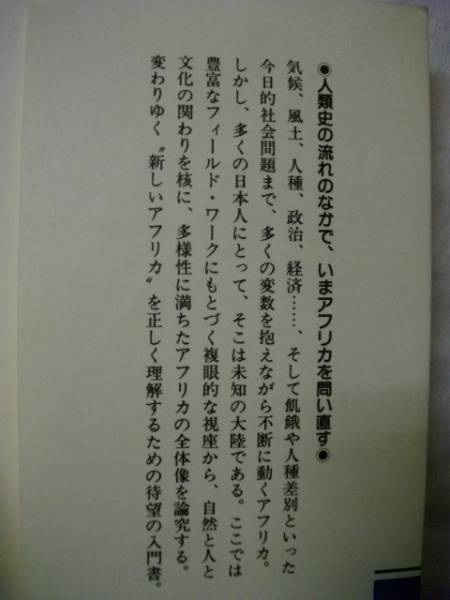 ●人類史の流れのなかで、いまアフリカを問い直す●
気候、風土、人種、政治、経済……、そして飢餓や人種差別といった
今日的社会問題まで、多くの変数を抱えながら不断に動くアフリカ。
しかし、多くの日本人にとって、そこは未知の大陸である。ここでは
豊富なフィールド・ワークにもとづく複眼的な視座から、自然と人と
文化の関わりを核に、多様性に満ちたアフリカの全体像を論究する。
変わりゆく〝新しいアフリカ〟を正しく理解するための待望の入門書。